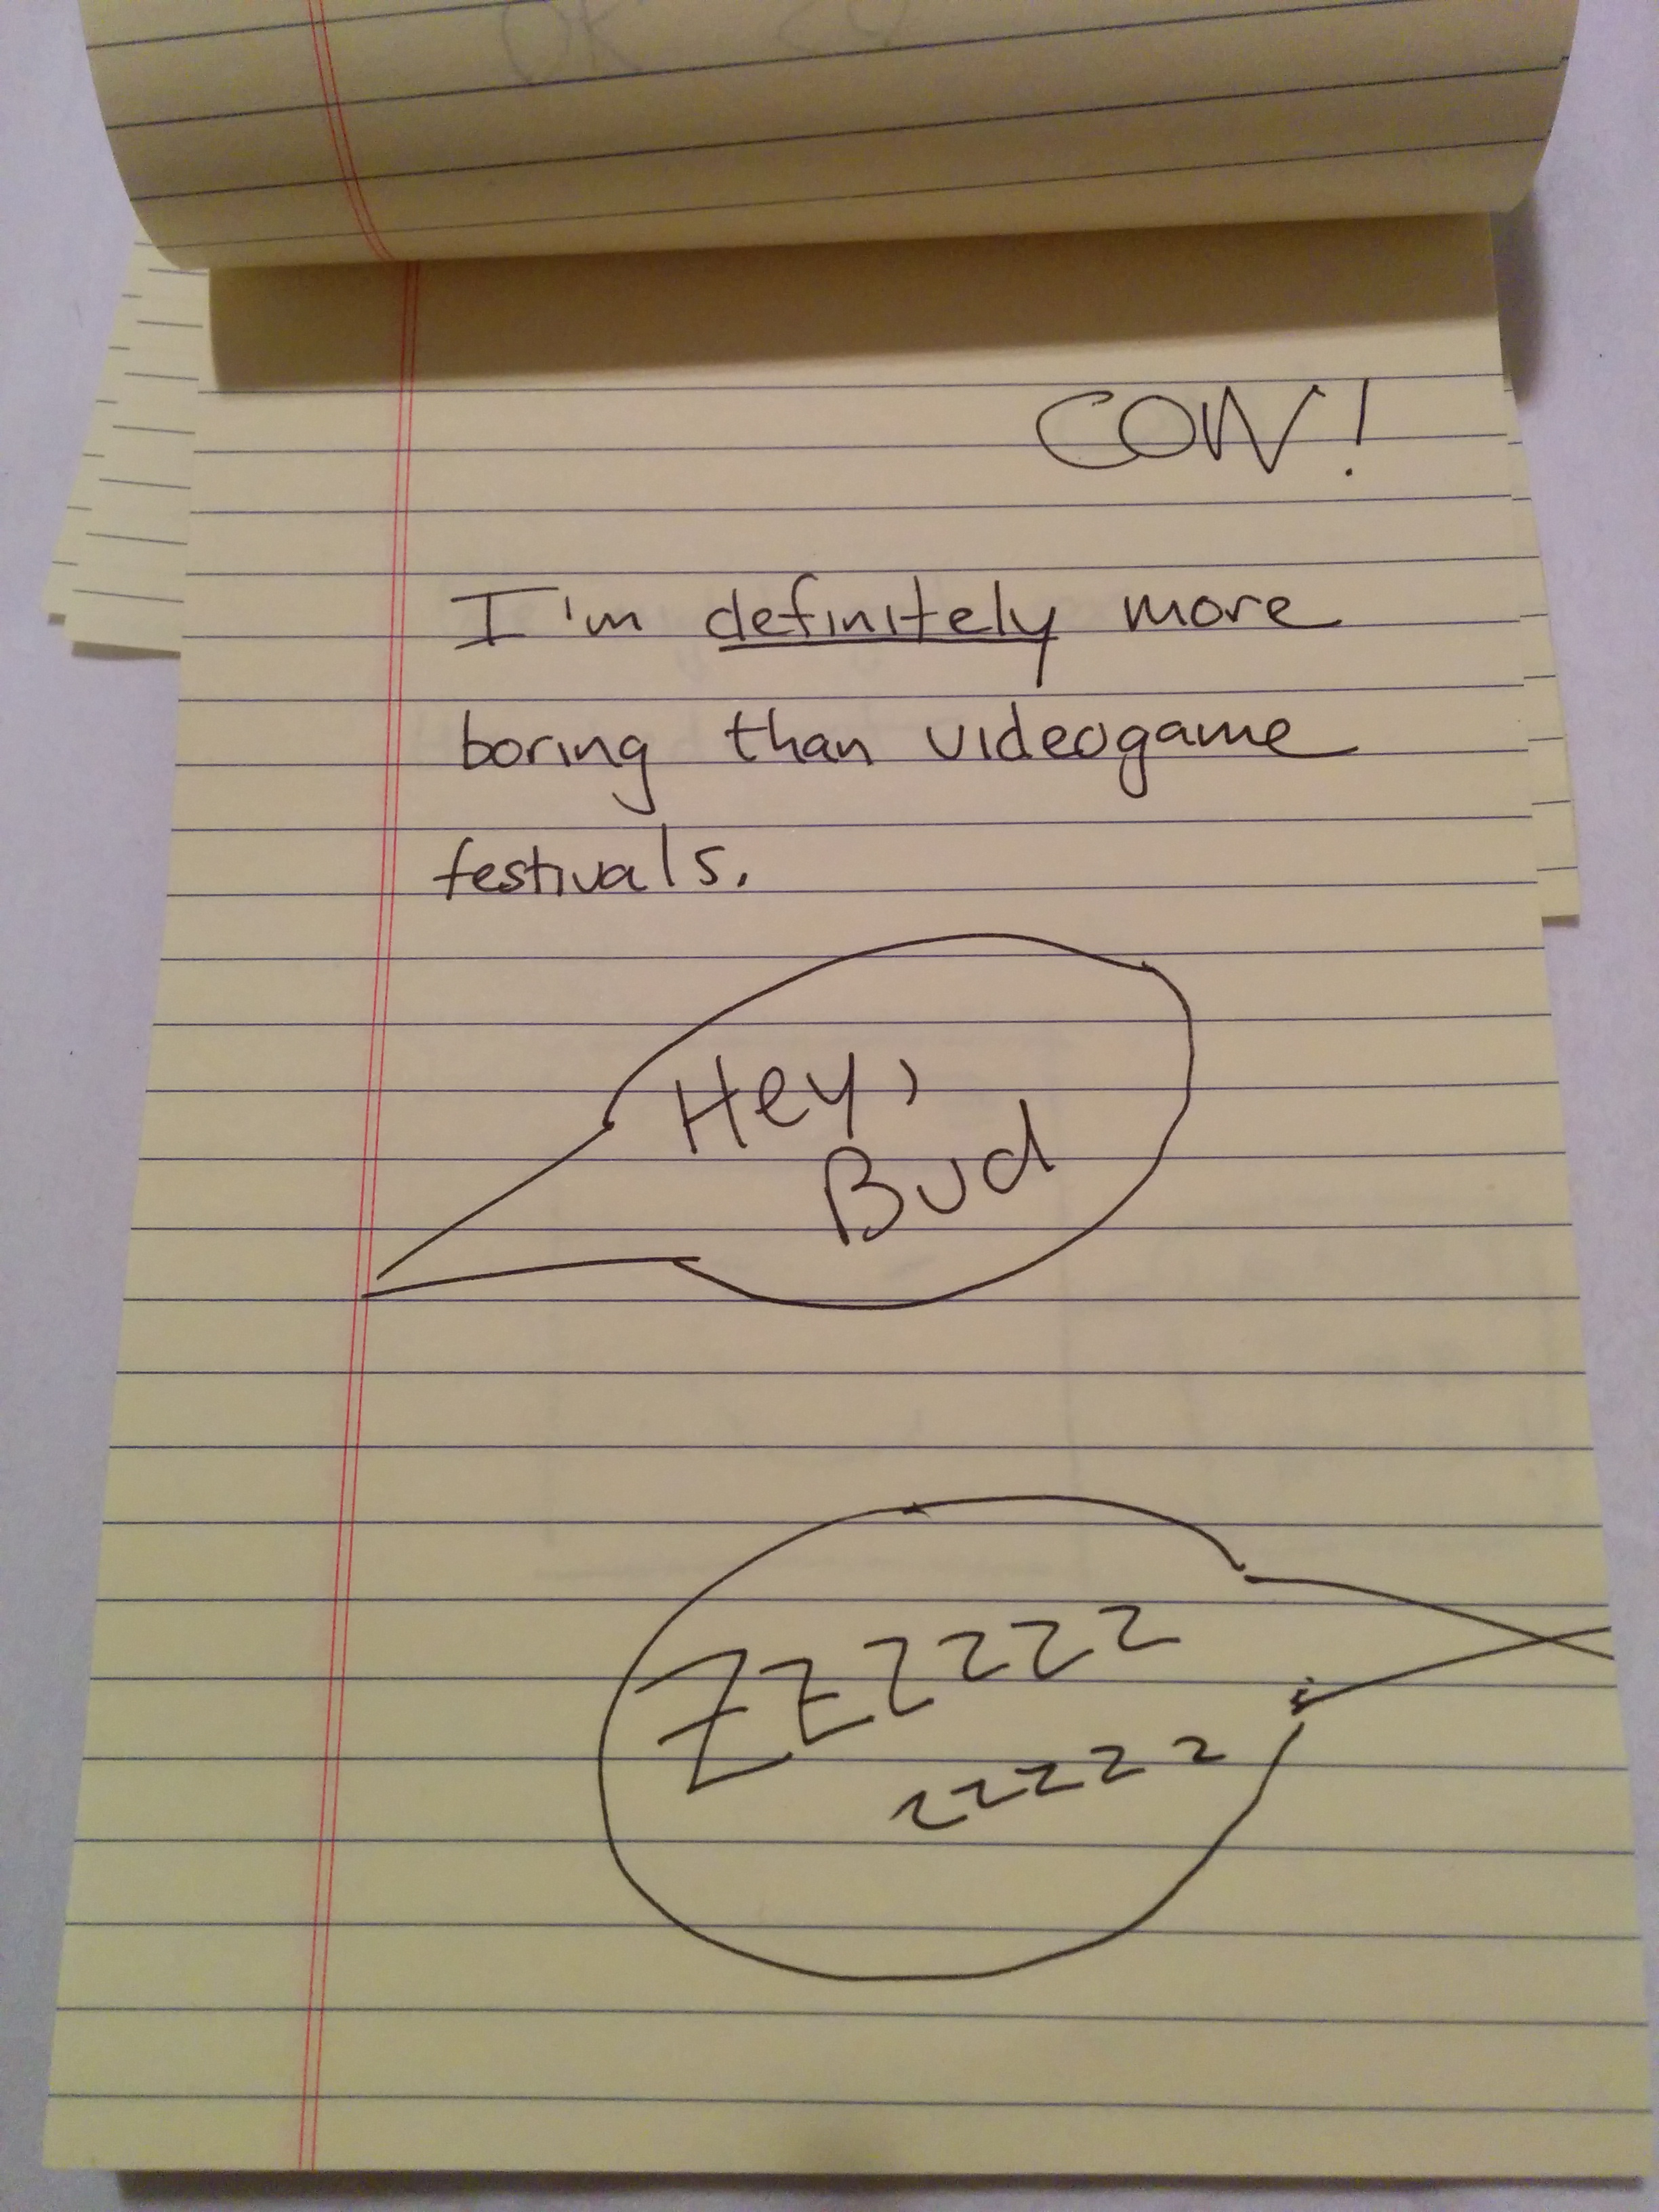 COW!
I'm definitely more
boring than videogame
festivals.
Hey,
Bud
ZZZzzz
zzzzz